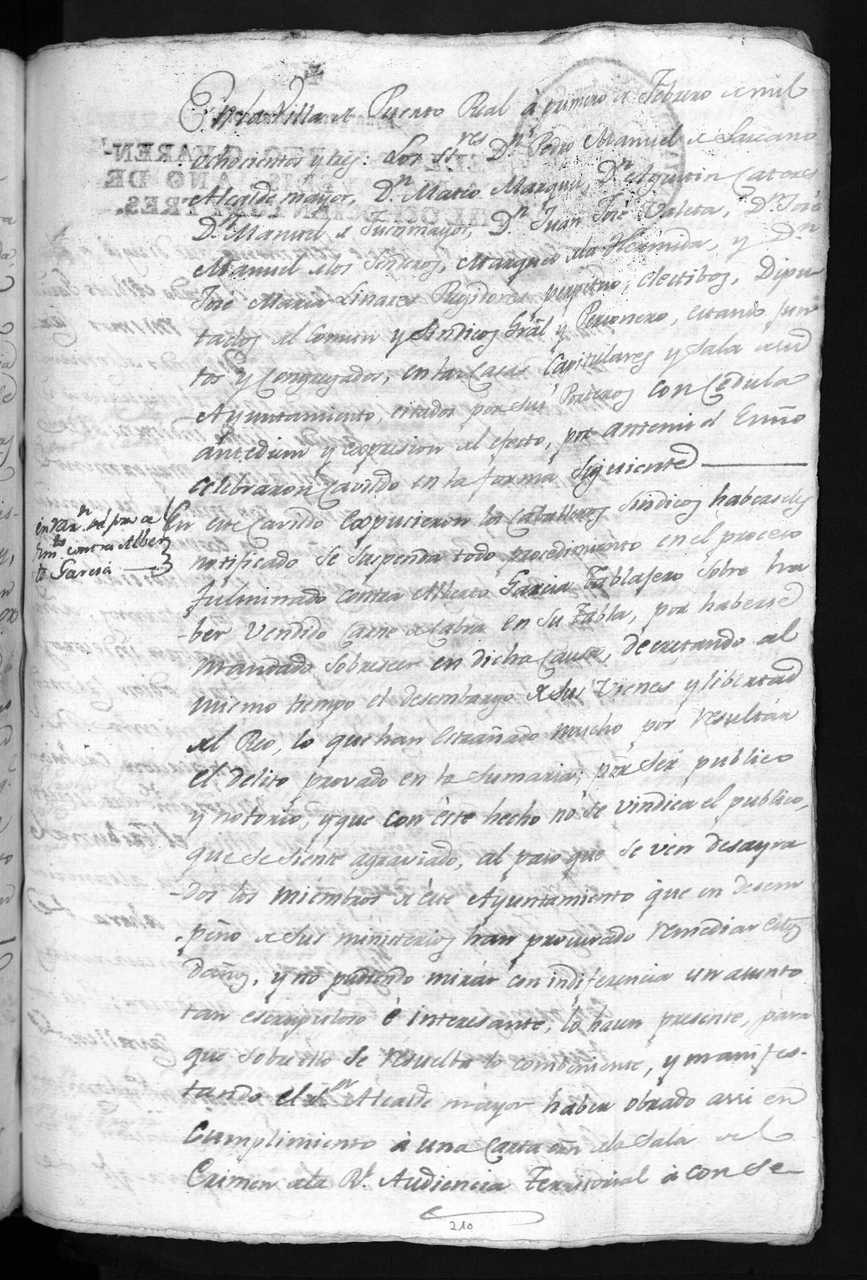 En la Villa de Puerto Real à primero de Febrero de mil
ochocientos y tres: Los Sres. Dn. Pedro Manuel de Lazcano
Alcalde mayor, Dn. Mateo Marquez, Dn. Agustin
Dn. Manuel de Dn. Juan José Dn. José
Manuel de los Marques de la Hermida, y Dn.
José Maria Linares Regidores perpetuo, electibos, Dipu
tados del Comun y Sindicos Gràl y Personero, estando jun
tos y Congregados, en las Casas Capitulares y Sala de su
Ayuntamiento, citados por sus Porteros con Cedula
antedium y expresion al efecto, por ante mi el Essno
celebraron Cavildo en la forma Siguiente
En este Cavildo Expucieron los Caballeros Sindicos haberseles
notificado Se suspenda todo procedimiento en el proceso
fulminado contra Alberto Garcia Tablajero Sobre ha
ber Vendido Carne de Cabra en su Tabla, por haberse
mandado Sobreseer en dicha Causa, decretando al
mismo tiempo el desembargo de sus Vienes y libertad
del Reo, lo que han Estrañado mucho por resultàr
el delito provado en la Sumaria, por Ser publico
y notorio, y que con èste hecho nò se vindica el publico,
que se siente agraviado, al paso que se ven desayra
dos los miembros de este Ayuntamiento que en desem
peño de sus ministerios han procurado remediar estos
daños, y no pudiendo miràr con indiferencia un asunto
tan escrupuloso è interesante, lo hacen presente, para
que sobre ello se resuelba lo combeniente, y manifes-
tando el Sor. Alcalde mayor haber obrado assi en
Cumplimiento à una Carta orn de la Sala del
Crimen de la Rl. Audiencia Territorial à conse
contra Alber
to Garcia
210